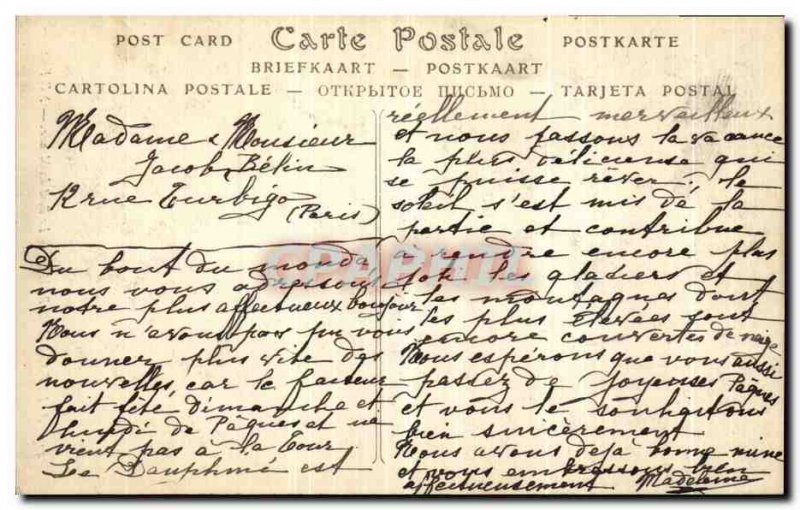 POST CARD Carte Postale POSTKARTE
BRIEFKAART — POSTKAART
CARTOLINA POSTALE — ОТКРЫТОЕ ПИСЬМО — TARJETA POSTAL
Madame & Monsieur
Jacob Bélin
12 rue Turbigo
(Paris)
Du bout du monde
nous vous adressons
notre plus affectueux bonjour
Nous n'avons pas pu vous
donner plus vite des
nouvelles, car le facteur
fait fête dimanche et
lundi de Pâques et ne
vient pas à la Tour
Le Dauphiné est
réellement merveilleux
et nous passons la vacance
la plus délicieuse qui
se puisse rêver, le
soleil s'est mis de la
partie et contribue
a rendre encore plus
les glaciers et
les montagnes dont
les plus élevées sont
encore couvertes de neige
Nous espérons que vous aussi
passez de joyeuses Pâques
et vous le souhaitons
bien sincèrement
Nous avons déjà bonne mine
et vous embrassons bien
affectueusement Madeleine